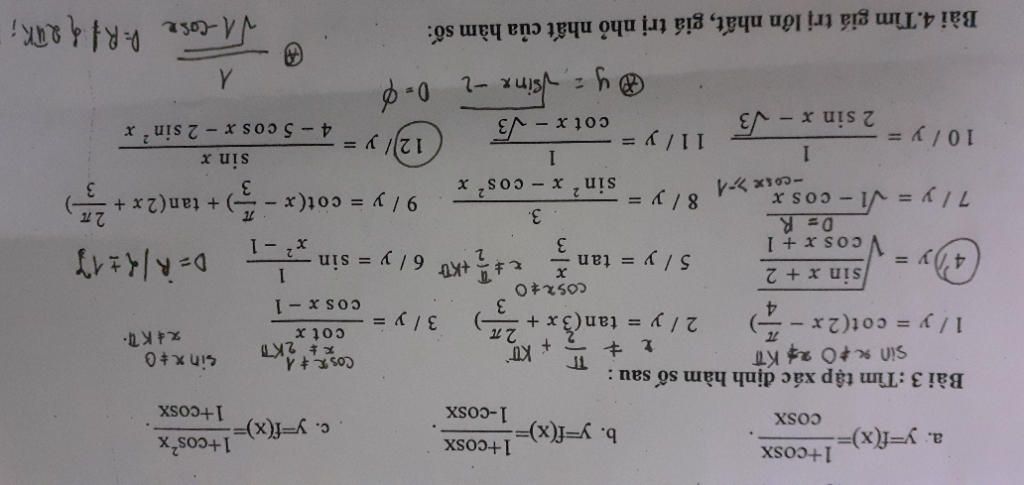 a. y=f(x)=\frac{1+cosx}{cosx}. b. y=f(x)=\frac{1+cosx}{1-cosx}. c. y=f(x)=\frac{1+cos²x}{1+cosx}.
Bài 3: Tìm tập xác định hàm số sau :
sin x ≠ 0 x ≠ Kπ x ≠ \frac{π}{2} + Kπ cosx ≠ 1 x ≠ K2π sin x ≠ 0 x ≠ Kπ.
1/ y = cot(2x - \frac{π}{4}) 2/ y = tan(3x + \frac{2π}{3}) 3/ y = \frac{cot x}{cos x - 1}
4/ y = \sqrt{\frac{sin x + 2}{cos x + 1}} 5/ y = tan \frac{x}{3} cosx ≠ 0 x ≠ \frac{π}{2} + Kπ 6/ y = sin \frac{1}{x² - 1} D = R / {± 1}
D = R
7/ y = \sqrt{1 - cos x} -cosx ≥ -1 8/ y = \frac{3}{sin² x - cos² x} 9/ y = cot(x - \frac{π}{3}) + tan(2x + \frac{2π}{3})
10/ y = \frac{1}{2 sin x - √3} 11/ y = \frac{1}{cot x - √3} 12/ y = \frac{sin x}{4 - 5 cos x - 2 sin² x}
⊛ y = \sqrt{sinx - 2} D = ϕ ⊛ \frac{1}{\sqrt{1 - cosx}} D = R \ { 2πK ;
Bài 4. Tìm giá trị lớn nhất, giá trị nhỏ nhất của hàm số: